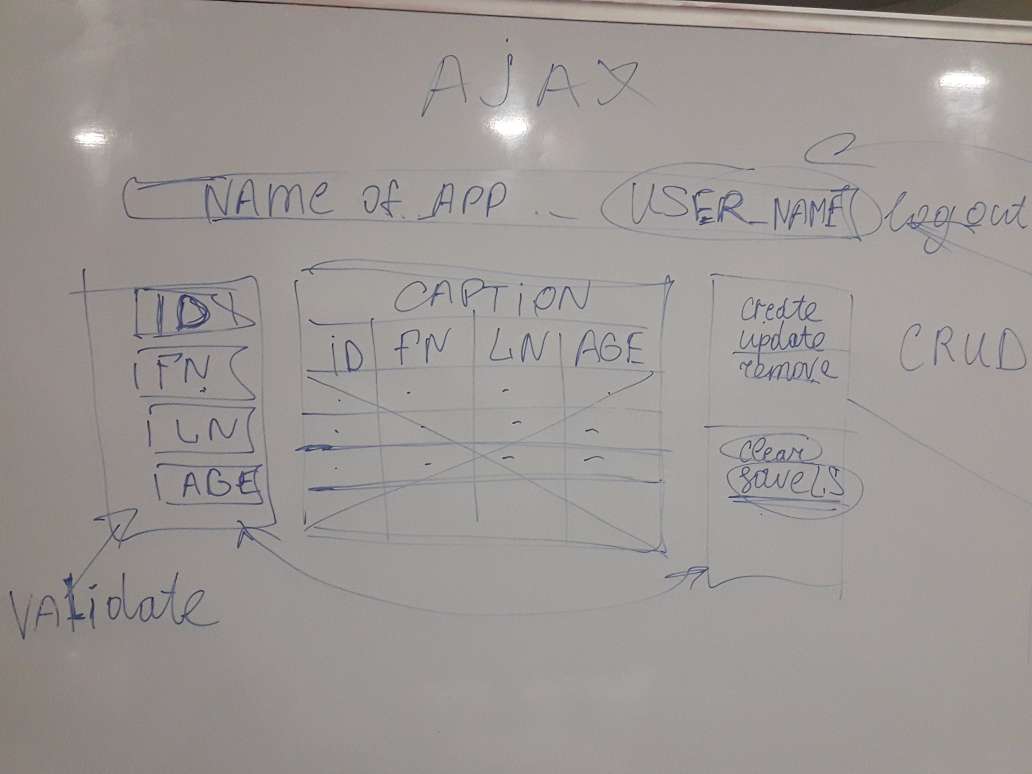 AJAX
NAME OF APP USER_NAME logout
ID
FN
LN
AGE
CAPTION
ID FN LN AGE
create
update
remove
CRUD
clear
save LS
VALidate